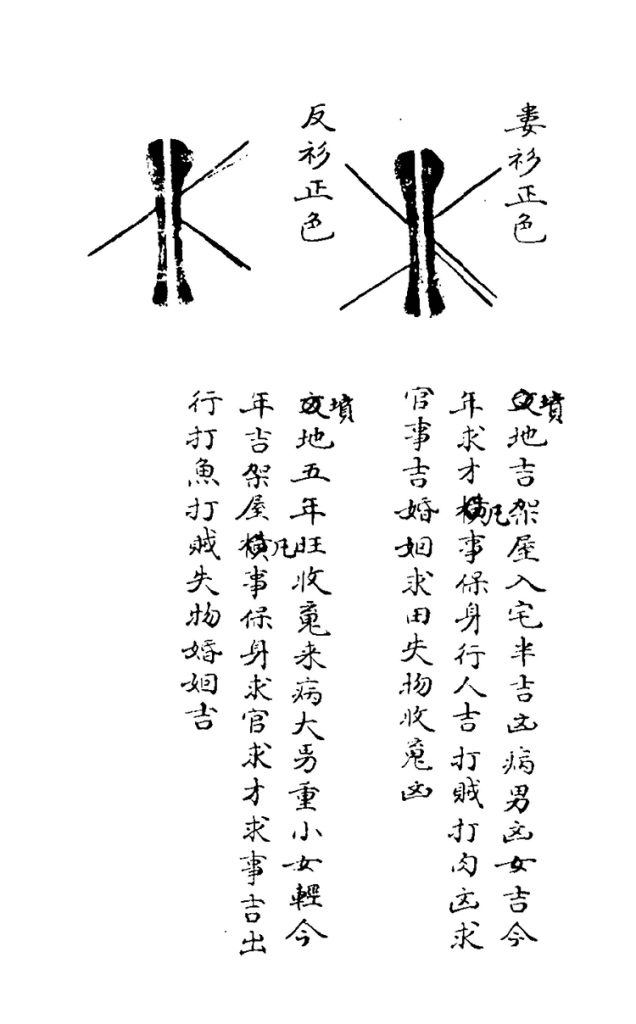 婁衫正色
墳地吉架屋入宅半吉凶病男凶女吉今
年求才凡事保身行人吉打贼打肉凶求
官事吉婚姻求田失物收䰟凶
反衫正色
墳地五年旺收䰟来病大男重小女輕今
年吉架屋凡事保身求官求才求事吉出
行打魚打贼失物婚姻吉